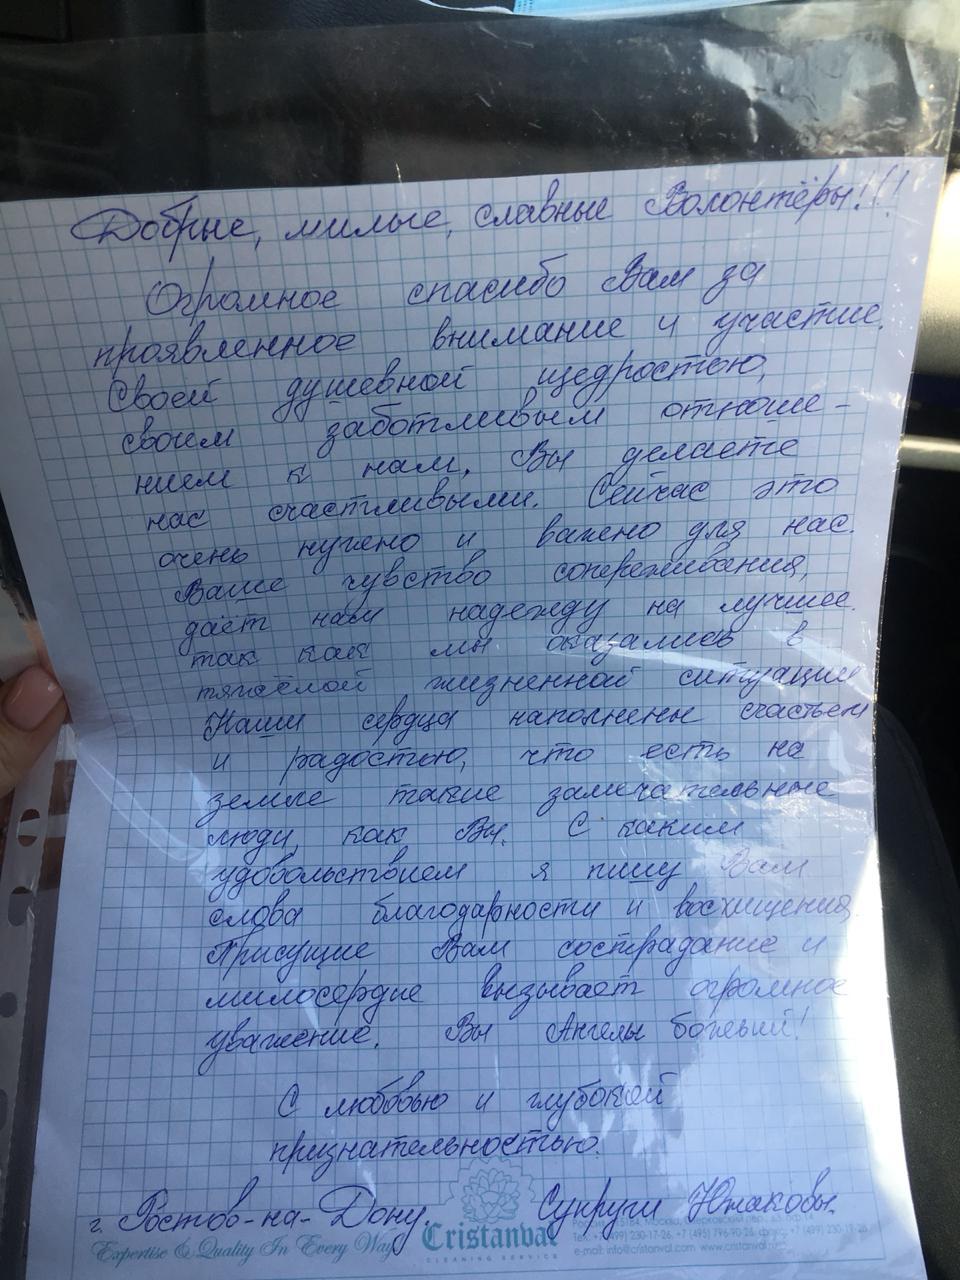 Добрые, милые, славные Волонтёры!!!
Огромное спасибо Вам за
проявленное внимание и участие.
Своей душевной щедростью,
своим заботливым отноше-
нием к нам, Вы делаете
нас счастливыми. Сейчас это
очень нужно и важно для нас.
Ваше чувство сопереживания,
даёт нам надежду на лучшее.
так как мы оказались в
тяжёлой жизненной ситуации
Наши сердца наполнены счастьем
и радостью, что есть на
земле такие замечательные
люди, как Вы. С каким
удовольствием я пишу Вам
слова благодарности и восхищения.
Присущие Вам сострадание и
милосердие вызывает огромное
уважение. Вы Ангелы божьий!
С любовью и глубокой
признательностью.
г. Ростов-на-Дону. Супруги Южаковы.
Expertise & Quality In Every Way
Cristanval
CLEANING SERVICE
Москва,
Тел.: +7 (499) 230-17-26, +7 (495) 796-90-26, факс: +7 (499) 230-17-26
e-mail: info@cristanval.com www.cristanval